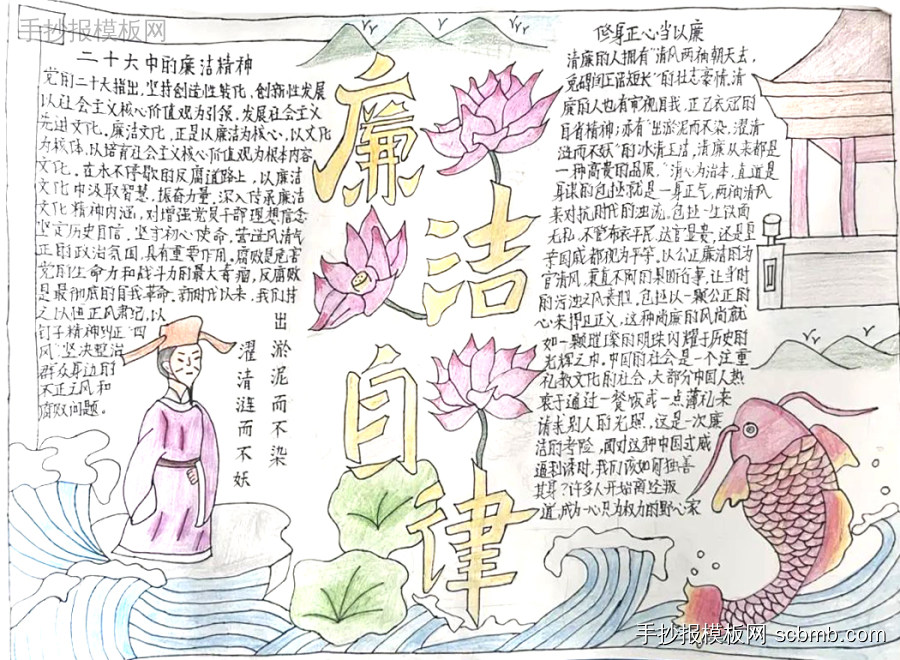 手抄报模板网
二十大中的廉洁精神
党的二十大指出,坚持创造性转化,创新性发展
以社会主义核心价值观为引领,发展社会主义
先进文化,廉洁文化,正是以廉洁为核心,以文化
为核体,以培育社会主义核心价值观为根本内容
文化,在永不停歇的反腐道路上,以廉洁
文化中汲取智慧,振奋力量,深入传承廉洁
文化精神内涵,对增强党员干部理想信念
坚定历史自信,坚守初心使命,营造风清气
正的政治氛围,具有重要作用,腐败是危害
党的生命力和战斗力的最大毒瘤,反腐败
是最彻底的自我革命,新时代以来,我们持
之以恒正风肃纪,以
钉子精神纠正"四
风"坚决整治
群众身边的
不正之风和
腐败问题。
出淤泥而不染
濯清涟而不妖
廉洁自律
修身正心当以廉
清廉的人拥有"清风两袖朝天去,
免得闾阎话短长"的壮志豪情,清
廉的人也有审视自我,正己衣冠的
自省精神;亦有"出淤泥而不染,濯清
涟而不妖"的冰清玉洁,清廉从来都是
一种高贵的品质。"清心为治本,直道是
身谋的包拯就是一身正气,两袖清风
来对抗时代的浊流。包拯一生以面
无私,不管布衣平民,达官显贵,还是皇
亲国戚都视为平等,以公正廉洁的为
官清风,秉直不阿的果断行事,让当时
的污浊之风丧胆,包拯以一颗公正的
心来捍卫正义,这种尚廉的风尚就
如一颗璀璨的明珠闪耀于历史的
光辉之中。中国的社会是一个注重
礼教文化的社会,大部分中国人热
衷于通过一餐饭或一点薄礼来
请求别人的光照,这是一次廉
洁的考验,面对这种中国式威
逼利诱时,我们该如何独善
其身?许多人开始离经叛
道,成为一心只为权力的野心家
手抄报模板网 scbmb.com